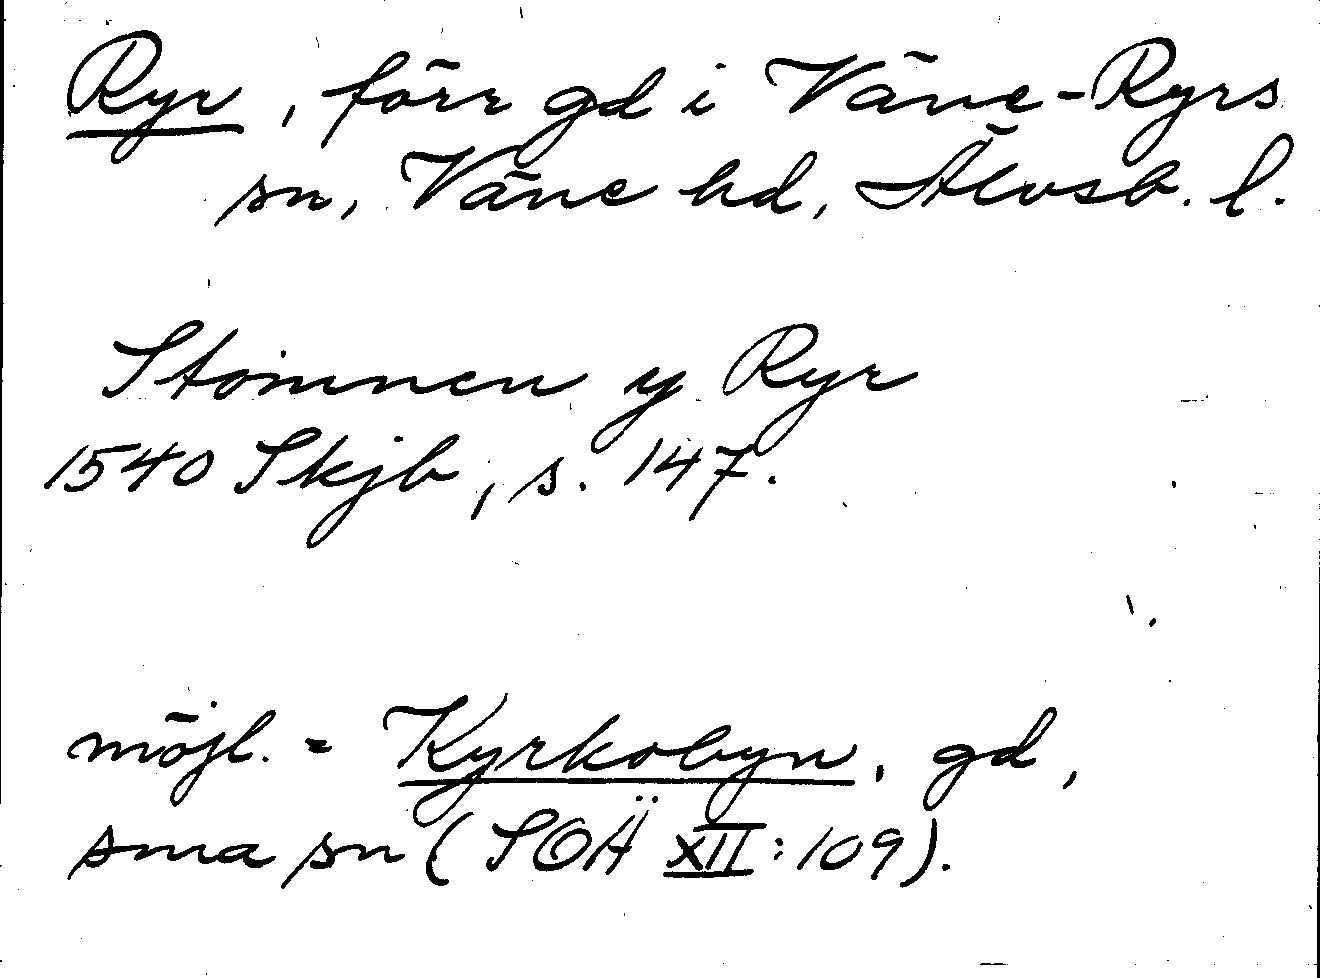 Ryr, förr gd i Väne-Ryrs
sn, Väne hd, Älvsb. l.
Stomnen y Ryr
1540 Skjb, s. 147.
möjl. = Kyrkobyn, gd,
sma sn (SOÄ XII:109).